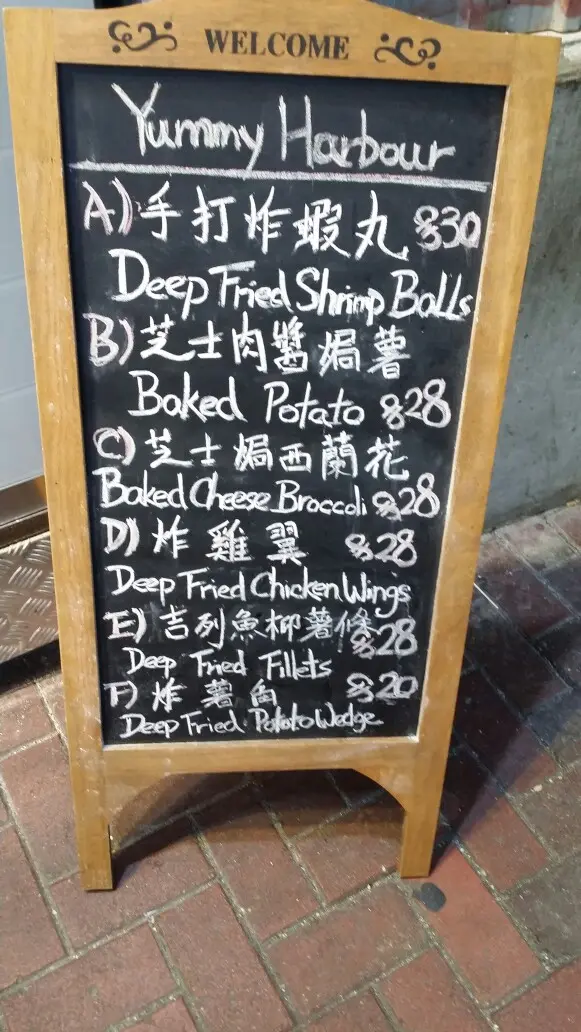 WELCOME
Yummy Harbour
A) 手打炸蝦丸 $30
Deep Fried Shrimp Balls
B) 芝士肉醬焗薯
Baked Potato $28
C) 芝士焗西蘭花
Baked Cheese Broccoli $28
D) 炸雞翼 $28
Deep Fried Chicken Wings
E) 吉列魚柳薯條 $28
Deep Fried Fillets
F) 炸薯角 $20
Deep Fried Potato Wedge